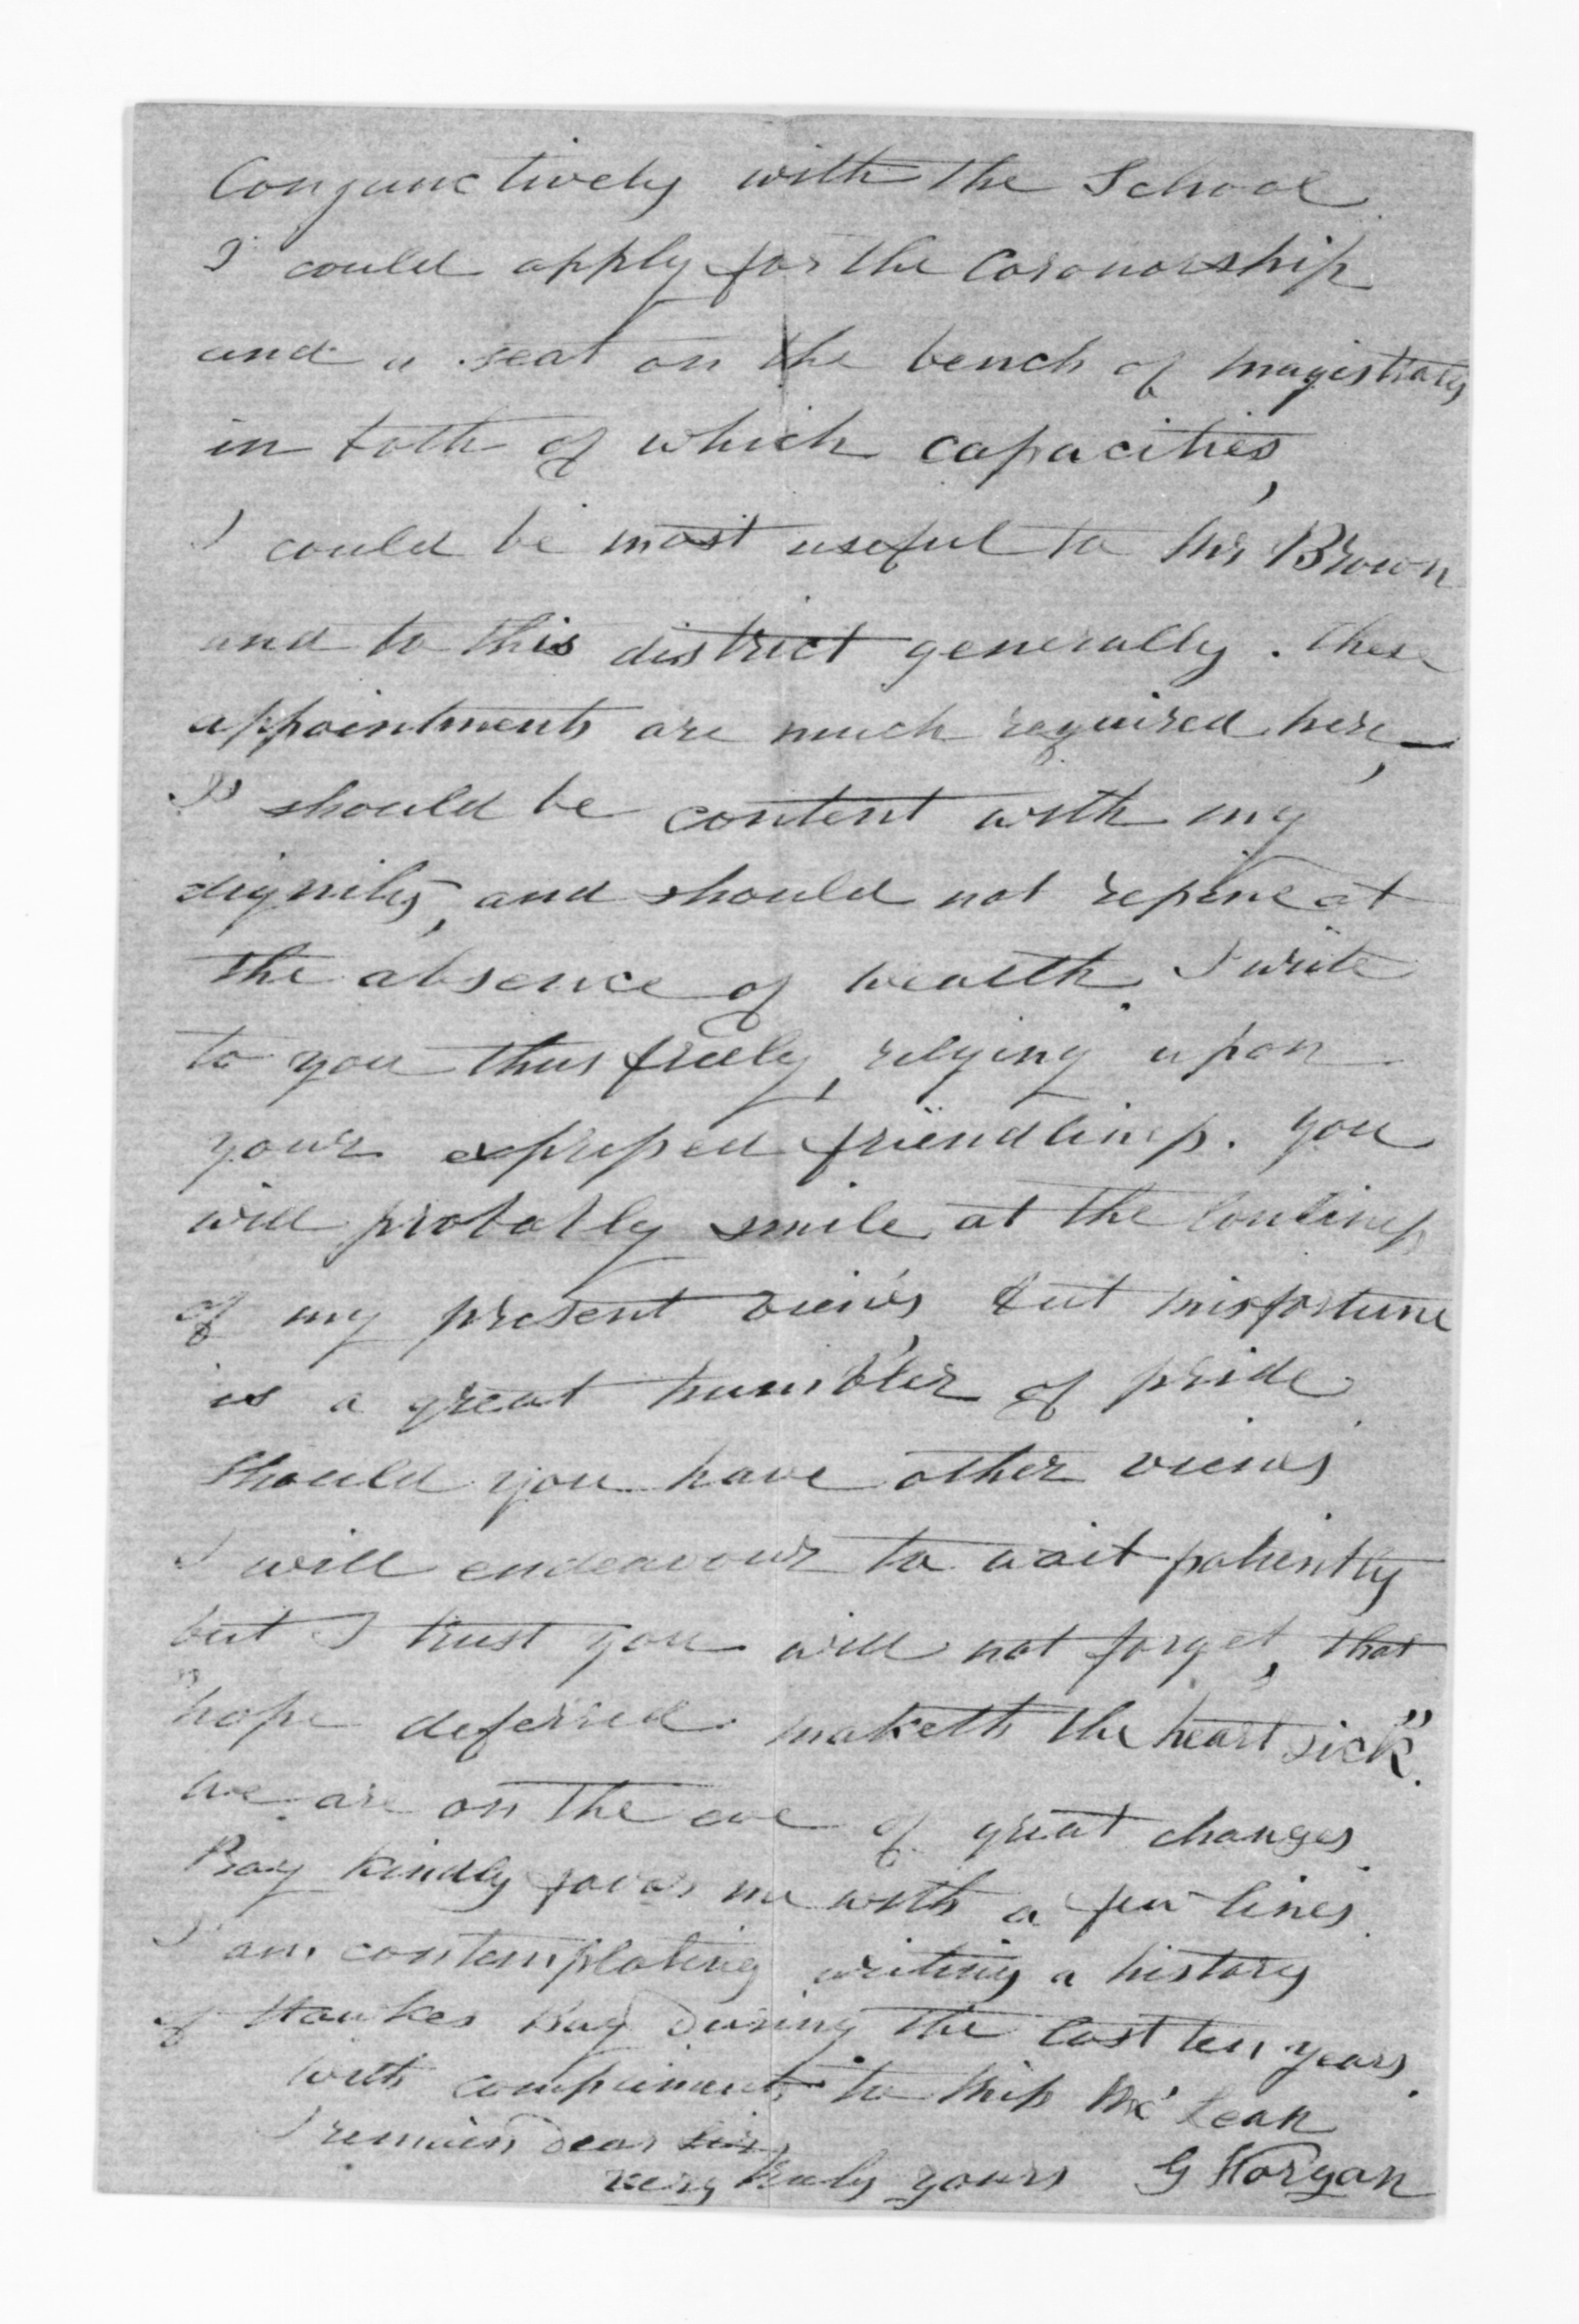 Conjunctively with the School
I could apply for the Coronorship
and a seat on the bench of magistrates
in both of which capacities,
I could be most useful to Mr Brown
and to this district generally. These
appointments are much required here,
I should be content with my
dignity, and should not repine at
the absence of wealth. I write
to you thus freely, relying upon
your expressed friendliness. You
will probably smile at the lowliness
of my present views, but misfortune
is a great humbler of pride.
Should you have other views
I will endeavour to wait patiently
but I trust you will not forget, that
"hope deferred maketh the heart sick".
We are on the eve of great changes.
Pray kindly favor me with a few lines.
I am contemplating writing a history
of Hawkes Bay During the last ten years.
With compliments to Miss McLean
I remain Dear Sir,
very truly yours G Worgan